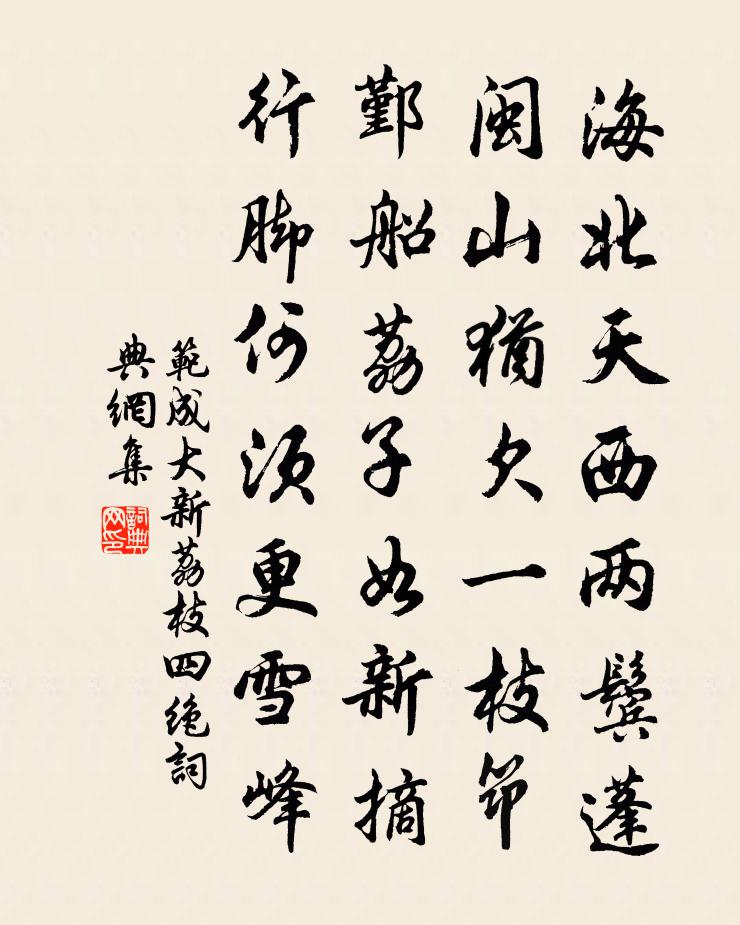 海北天西两鬓蓬
閩山猶欠一枝筇
鄞船荔子如新摘
行脚何須更雪峰
範成大新荔枝四絶詞
典網集
詞典网印